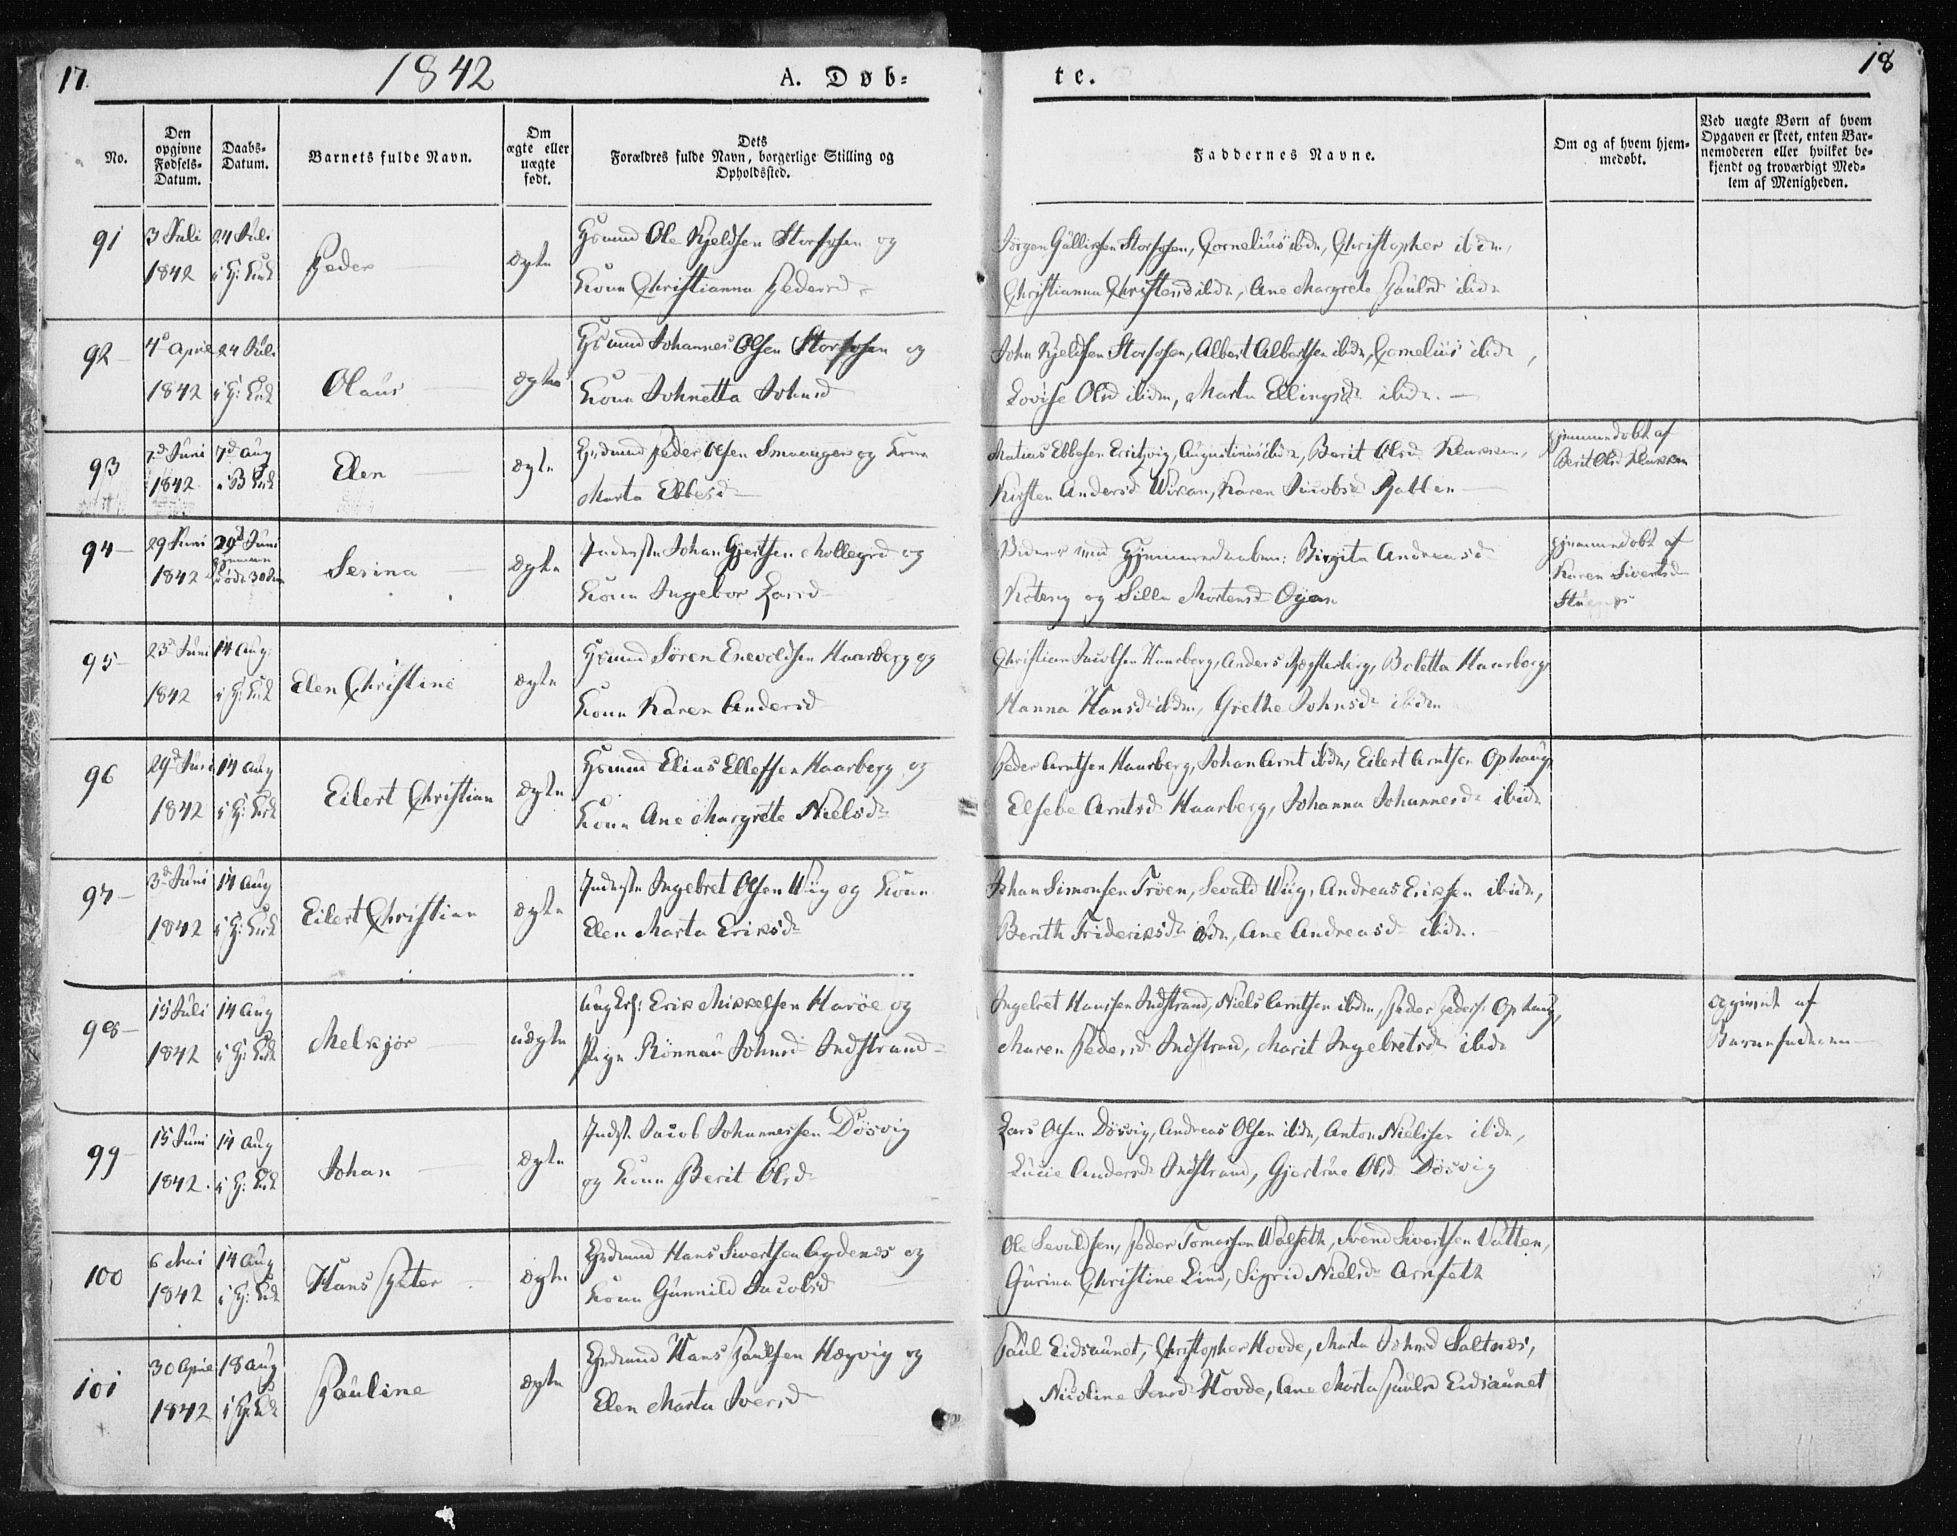 17.
1842
A. Døb=
te.
18
No.
Den opgivne Fødsels-Datum.
Daabs-Datum.
Barnets fulde Navn.
Om ægte eller uægte født.
Dets Forældres fulde Navn, borgerlige Stilling og Opholdssted.
Faddernes Navne.
Om og af hvem hjemmedøbt.
Ved uægte Børn af hvem Opgaven er skeet, enten Barnemoderen eller hvilket bekjendt og troværdigt Medlem af Menigheden.
91
3 Juli 24 Juli
1842
Peder
ægte
Ole Kjeldsen Storfosen og
Kone Christianna Pedersd
Jörgen Storfosen, Cornelius ibdm, Christopher ibdm,
Christianna ibdm, Ane Margrete Paulsd ibdm
92
4d April 24 Juli
1842
Olaus
ægte
Gbmd Johannes Olsen Storfosen og
Kone Johnetta Johnsd
John Kjeldsen Storfosen, Albert Albertsen ibdm, Cornelius ibdm,
Lovise Olsd ibdm, Marta Ellingsd ibdm.
93
7d Juni 7d Aug
1842
Elen
ægte
Peder Olsen og Kone
Marta Ebbesd
Matias Ebbesen, Augustinus ibdm, Berit Olsd
Kirsten Andersd, Karen Jacobsd
hjemmedøbt af
Berit Olsd
94
29 Juni 29d Juni
1842
Serina
ægte
Inderste Johan Gjertsen Mollegrd og
Kone Ingebor Larsd
Birgita Andreasd
og Silla Mortensd
hjemmedøbt af
Karen Sivertsd
95
23d Juni 14 Aug
1842
Elen Christine
ægte
Gbmd Sören Enevoldsen Haarberg og
Kone Karen Andersd
Christian Jacobsen Haarberg, Anders, Boletta Haarberg
Hanna Hansd ibdm, Grethe Johnsd ibdm
96
29d Juni 14 Aug
1842
Eilert Christian
ægte
Gbmd Elias Ellefsen Haarberg og
Kone Ane Margrete Nielsd
Peder Arntsen Haarberg, Johan Arnt ibdm, Eilert Arntsen Ophaug
Elsebe Arntsd Haarberg, Johanna Johannesd ibdm
97
3d Juni 14 Aug
1842
Eilert Christian
ægte
Inderste Ingebret Olsen Wiig og Kone
Elen Marta Eriksd
Johan Simonsen Tröen, Sevald Wiig, Andreas Eriksen ibidm,
Berith Frideriksd ibdm, Ane Andreasd ibdm.
98
15 Juli 14 Aug
1842
Melkjör
uægte
Ungkrl: Erik Mikkelsen Haröe og
Pige Rönnau Johnsd Indstrand
Ingebret Hansen Indstrand, Niels Arntsen ibdm, Peder Peders: Ophaug,
Maren Pedersd Indstrand, Marit Ingebretsd ibdm
opgivet af
Barnefaderen
99
15 Juni 14 Aug
1842.
Johan
ægte
Inderst Jacob Johannessen Dösvig
og Kone Berit Olsd
Lars Olsen Dösvig, Andreas Olsen ibdm, Anton Nielssen ibdm,
Lucie Andersd Indstrand, Gjertrue Olsd Dösvig
100
6 Mai 14 Aug
1842
Hans Peter
ægte
Hans Sivertsen Agdenes og
Kone Gunnild Jacobsd
Ole Sevaldsen, Peder Tomassen Wolseth, Svend Sivertsen Vatten,
Gurina Christine Lind, Sigrid Nielsd Arnseth
101
30 April 18 Aug
1842
Pauline
ægte
Hans Paulsen Hegvig og
Elen Marta Iversd
Paul Eidsaunet, Christopher Hovde, Marta Johnsd Saltnes,
Nicoline Jensd Hovde, Ane Marta Paulsd Eidsaunet